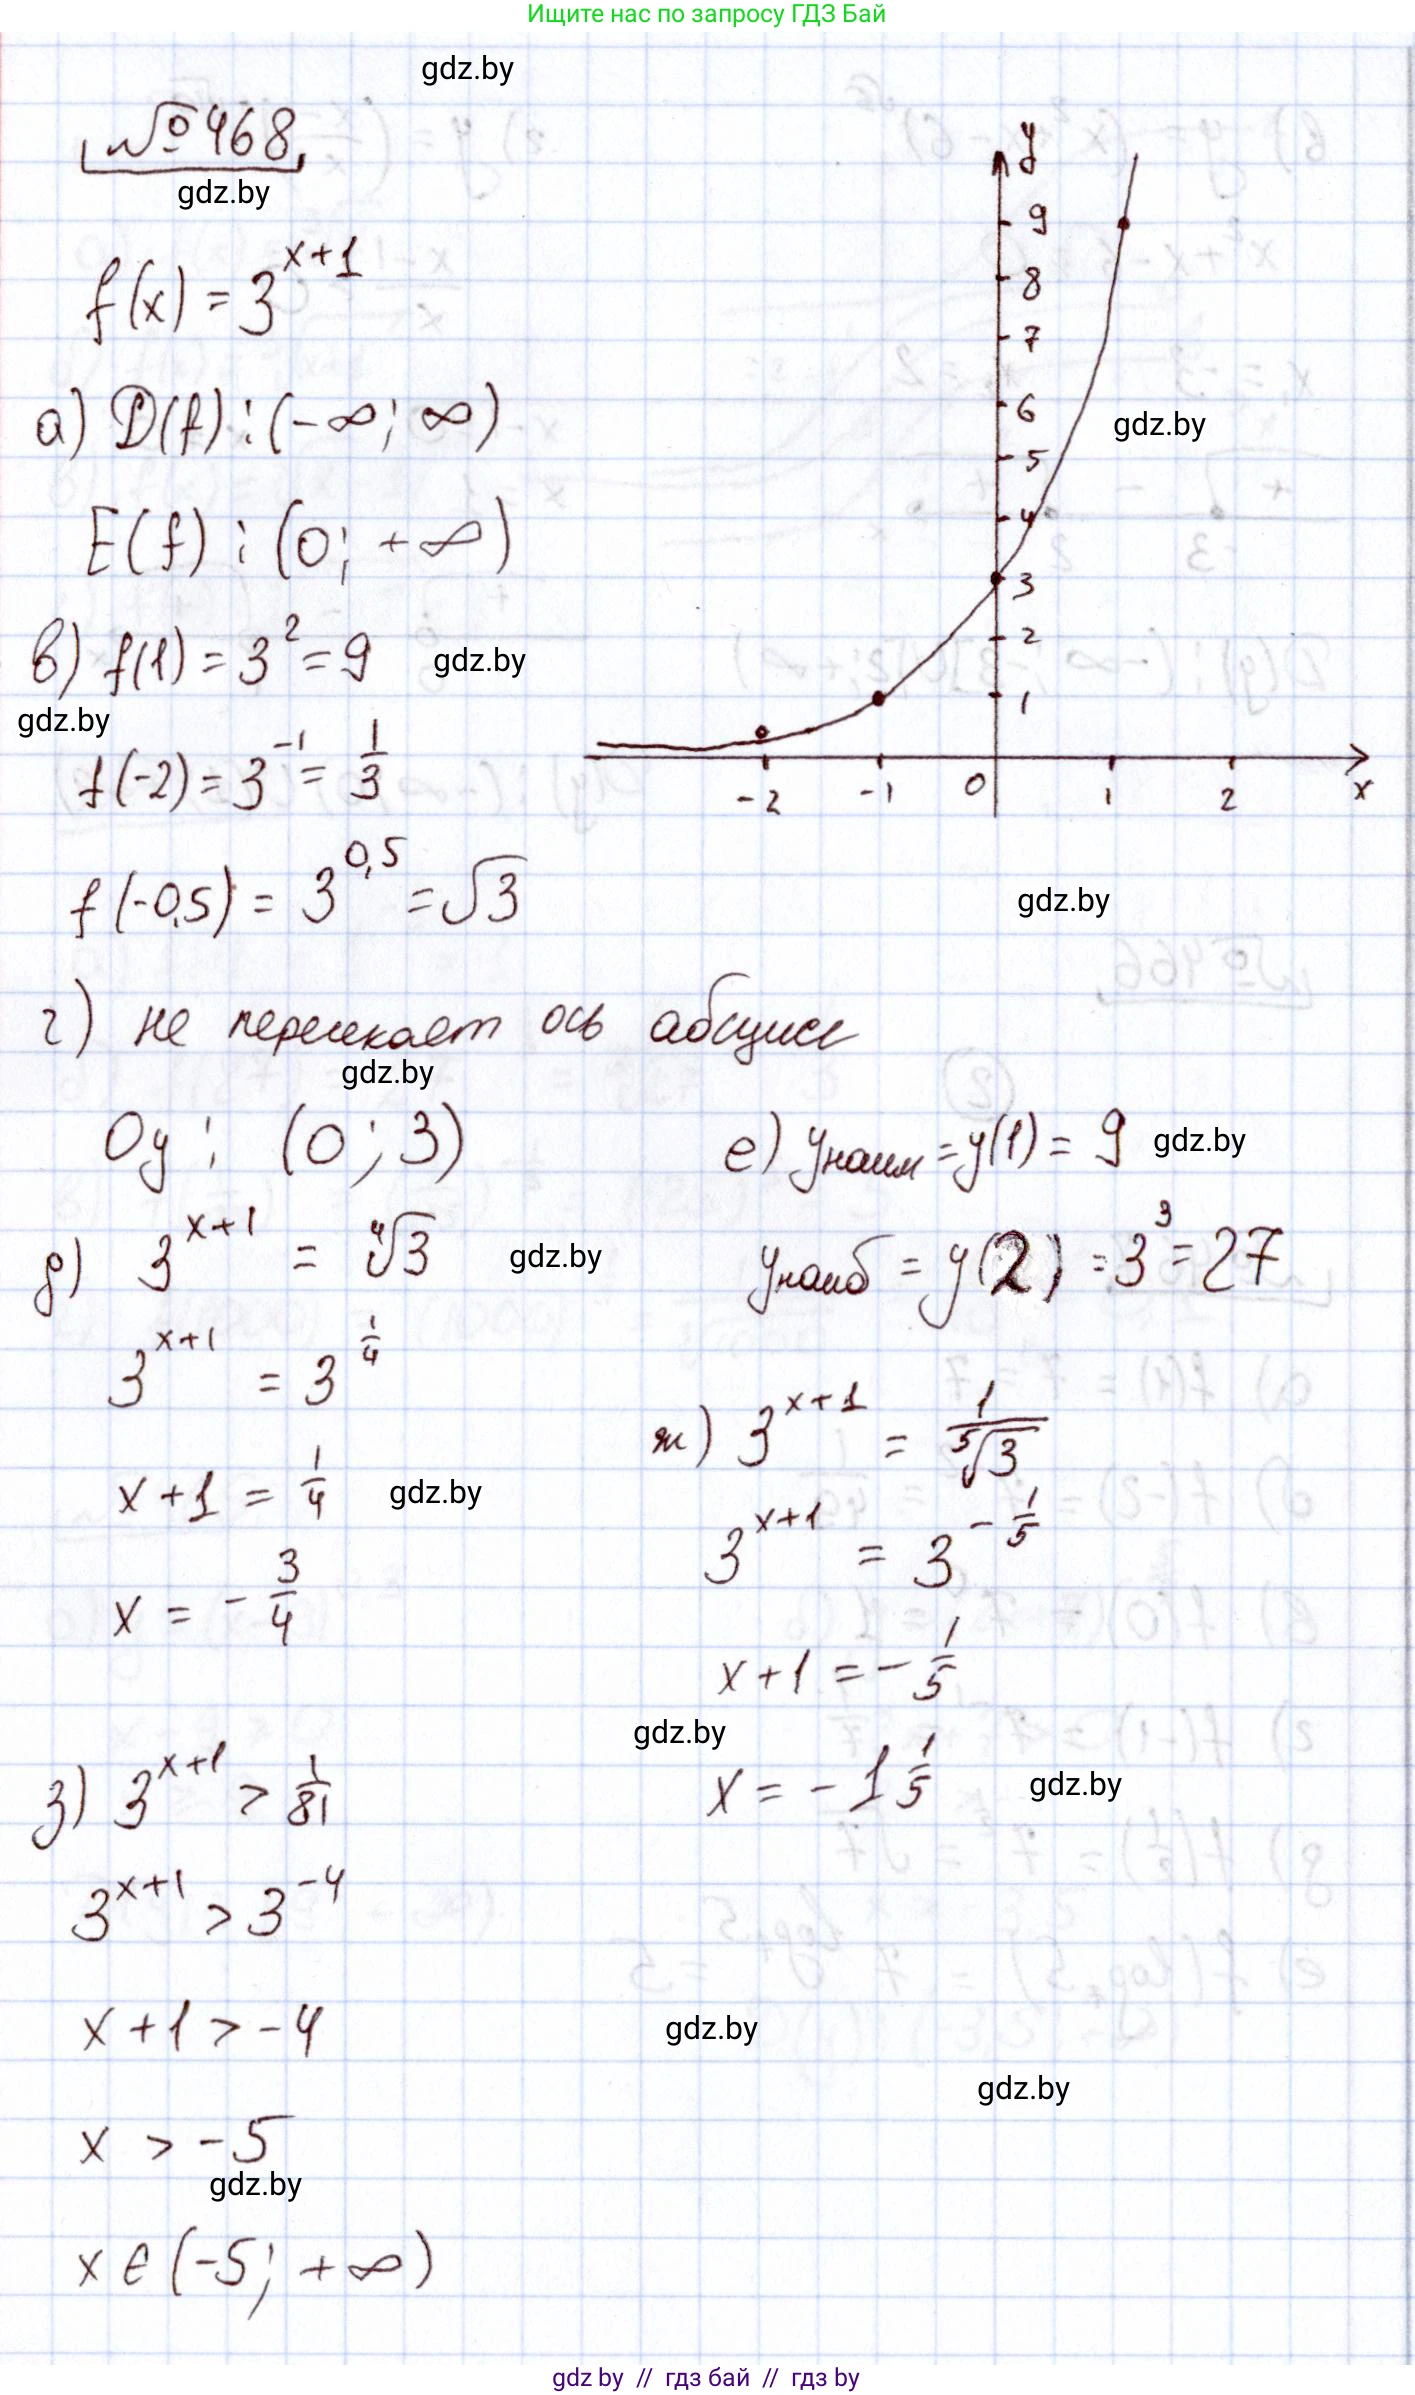 Ищите нас по запросу ГДЗ Бай
gdz.by
№468
gdz.by
f(x) = 3^{x+1}
а) D(f) : (-∞; ∞)
E(f) : (0; +∞)
в) f(1) = 3^2 = 9
gdz.by
gdz.by
f(-2) = 3^{-1} = 1/3
f(-0,5) = 3^{0,5} = √3
y
9
8
7
6
gdz.by
5
4
3
2
1
-2 -1 0 1 2 x
gdz.by
г) не пересекает ось абсцисс
gdz.by
Oy : (0; 3)
д) 3^{x+1} = ⁴√3
gdz.by
3^{x+1} = 3^{1/4}
x+1 = 1/4
gdz.by
x = -3/4
е) yнаим = y(1) = 9
gdz.by
yнаиб = y(2) = 3^3 = 27
ж) 3^{x+1} = 1/⁵√3
3^{x+1} = 3^{-1/5}
x+1 = -1/5
gdz.by
x = -1 1/5
gdz.by
з) 3^{x+1} > 1/81
3^{x+1} > 3^{-4}
x+1 > -4
gdz.by
gdz.by
x > -5
gdz.by
x ∈ (-5; +∞)
gdz by // гдз бай // гдз by